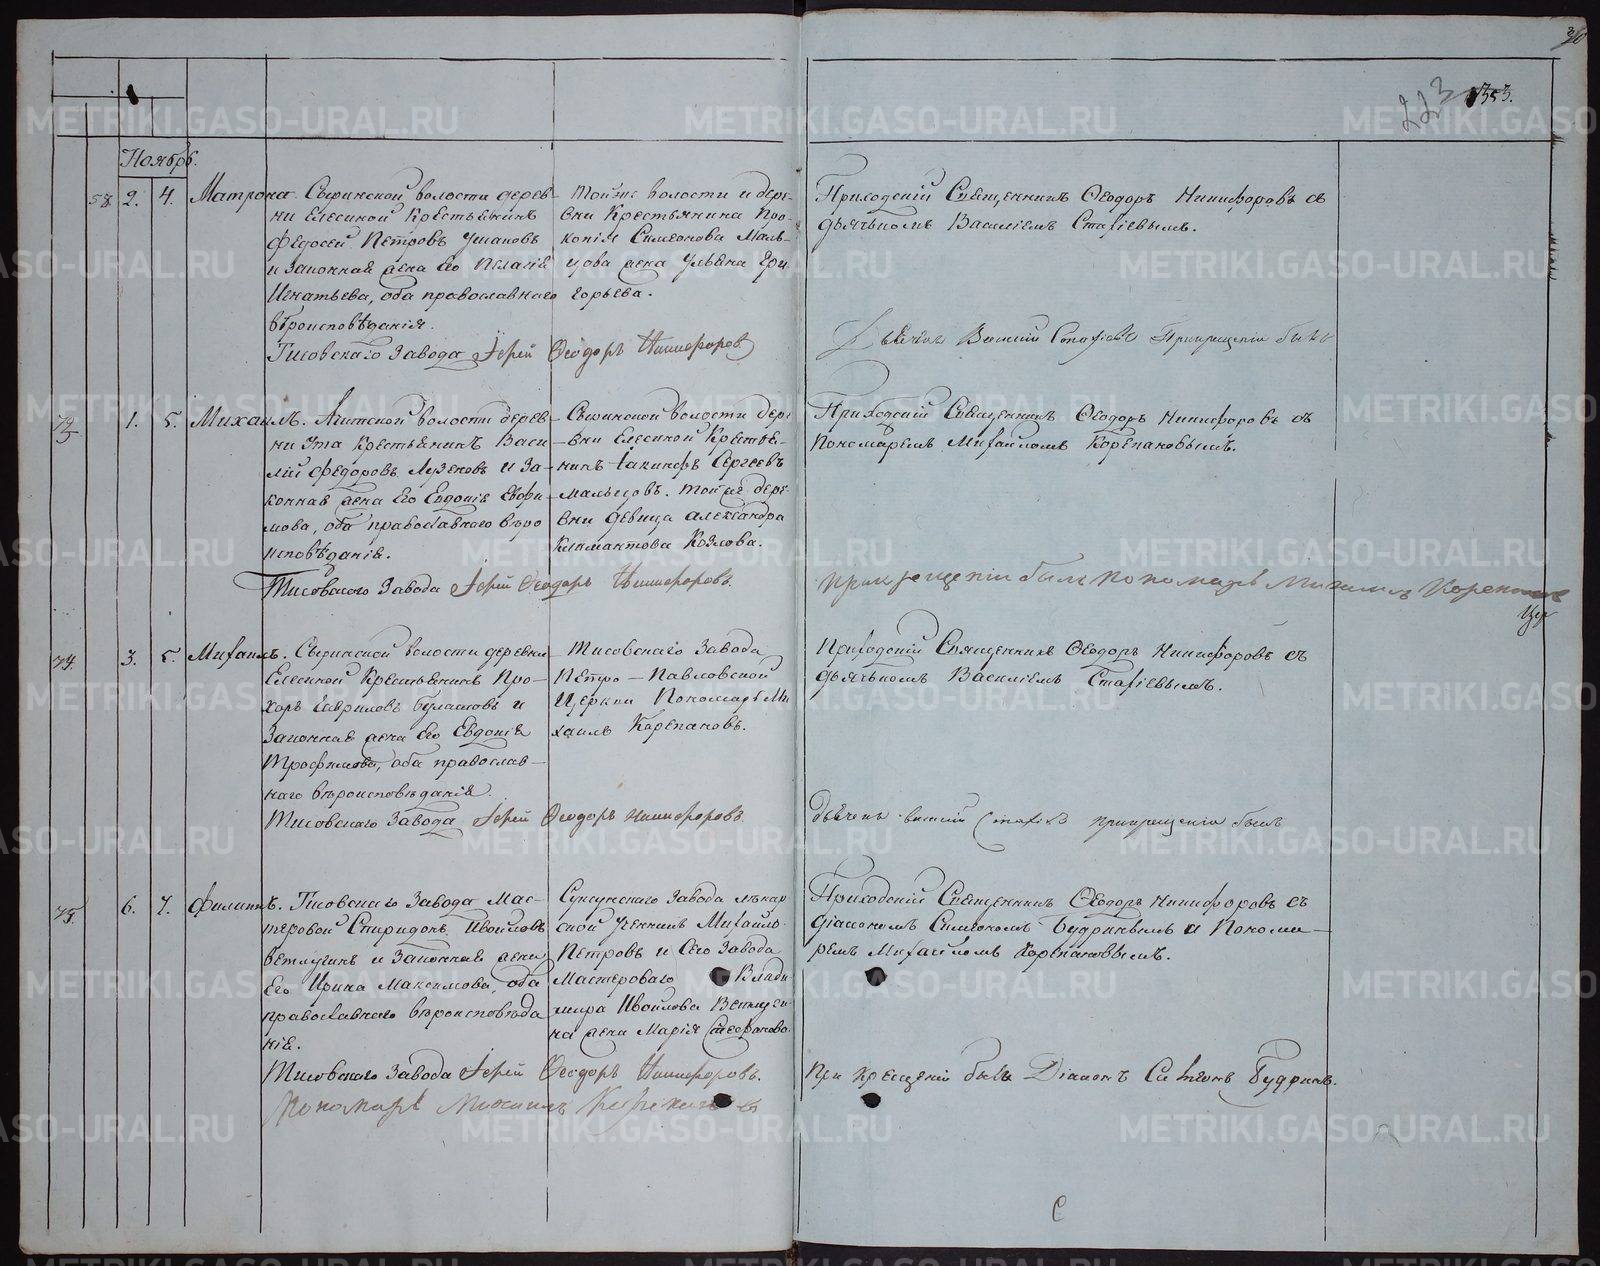 353.
223
Ноябрь.
58. 2. 4. Матрона. Сыринской волости дерев-
ни Елесиной Крестьянинъ
Федосей Петровъ Ушаковъ
и законная жена его Пелагія
Игнатьева, оба православнаго
вѣроисповѣданія.
Тисовскаго Завода Іерей Ѳеодоръ Никифоровъ
Тойже волости и дере-
вни Крестьянина Про-
копія Симеонова Маль-
цова жена Ульяна Гри-
горьева.
Приходскій Священникъ Ѳеодоръ Никифоровъ съ
дьячькомъ Василіемъ Стафіевымъ.
Дьячекъ Василій Стафіевъ Прикрещеніи былъ
1. 5. Михаилъ. Ачитской волости дерев-
ни Утa Крестьянинъ Васи-
лій Федоровъ Лузековъ и за-
конная жена его Евдокія Евфи-
мова, оба православнаго вѣро
исповѣданія.
Тисовскаго Завода Іерей Ѳеодоръ Никифоровъ.
Сыринской волости дере
вни Елесиной Крестья-
нинъ Іакинфъ Сергеевъ
Мальцовъ. Тойже дере-
вни девица Александра
Климантова Козлова.
Приходскій Священникъ Ѳеодоръ Никифоровъ съ
Пономаремъ Михайломъ Корепановымъ.
При крещеніи былъ Пономарь Михаилъ Корепановъ
74. 3. 5. Михаилъ. Сыринской волости деревни
Елесиной Крестьянинъ Про-
хоръ Гавриловъ Булатовъ и
Законная жена его Евдокія
Трофимова, оба православ-
наго вѣроисповѣданія.
Тисовскаго Завода Іерей Ѳеодоръ Никифоровъ
Тисовскаго Завода
Петро-Павловской
Церкви Пономарь Ми
хаилъ Корепановъ.
Приходскій Священникъ Ѳеодоръ Никифоровъ съ
дьячькомъ Василіемъ Стафіевымъ.
дьячекъ василій Стафіевъ прикрещеніи былъ
75. 6. 7. Филиппъ. Тисовскаго Завода Мас-
теровой Спиридонъ Ивойловъ
Ветлугинъ и Законная жена
Его Ирина Максимова, оба
православнаго вѣроисповѣда
нія.
Тисовскаго Завода Іерей Ѳеодоръ Никифоровъ.
Пономарь Михаилъ Корепановъ
Суксунскаго Завода лѣкар
ской Ученикъ Михайло
Петровъ и Сего Завода
Мастероваго Влади
мира Ивойлова Ветлуги-
на жена Марія Стефанова.
Приходскій Священникъ Ѳеодоръ Никифоровъ съ
діакономъ Симеономъ Будринымъ и Понома-
ремъ Михайломъ Корепановымъ.
При Крещеніи былъ Діаконъ Симеонъ Будринъ.